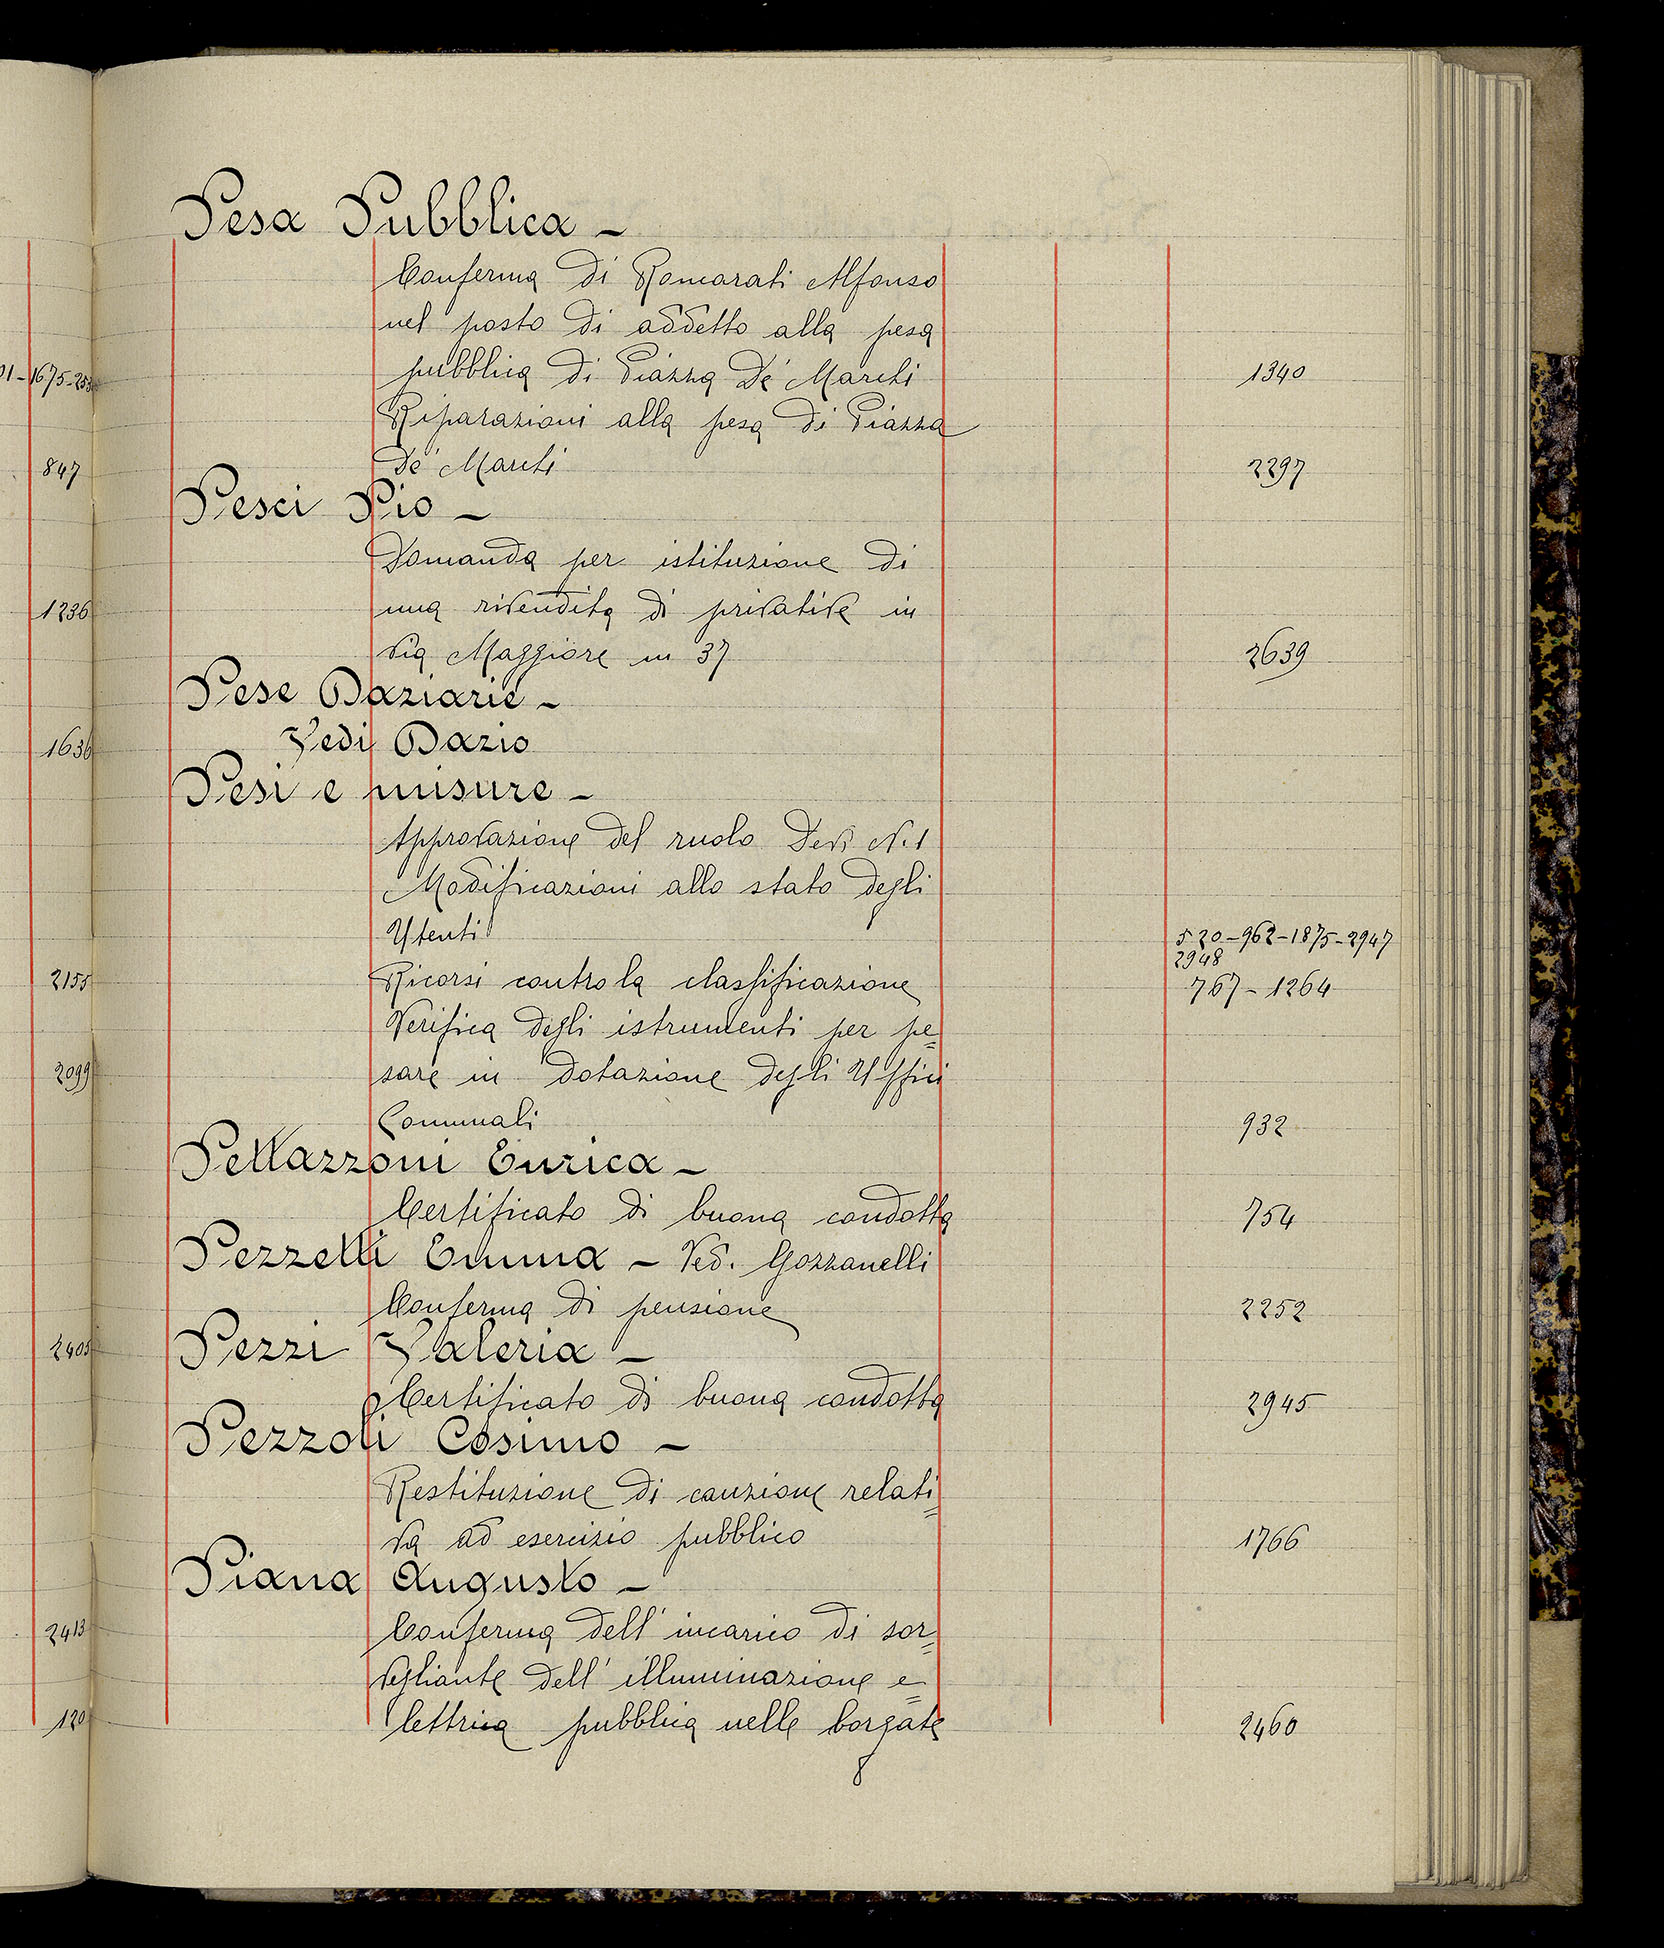 Pesa Pubblica -
Conferma di Romarati Alfonso
nel posto di addetto alla pesa
pubblica di Piazza De' Marchi 1340
Riparazioni alla pesa di Piazza
De' Marchi 2297
Pesci Pio -
Domanda per istituzione di
una rivendita di privative in
via Maggiore m 37 2639
Pese Daziarie -
Vedi Dazio
Pesi e misure -
Approvazione del ruolo N. 1
Modificazioni allo stato degli
Utenti 520-962-1875-2947
2948
Ricorsi contro la classificazione 767-1264
Verifica degli istrumenti per pe=
sare in dotazione degli Uffici
Comunali 932
Pettazzoni Enrica -
Certificato di buona condotta 754
Pezzetti Emma - Ved. Gozzanelli
Conferma di pensione 2252
Pezzi Valeria -
Certificato di buona condotta 2945
Pezzoli Cosimo -
Restituzione di cauzione relati=
va ad esercizio pubblico 1766
Piana Augusto -
Conferma dell'incarico di sor=
vegliante dell'illuminazione e=
lettrica pubblica nelle borgate 2460
847
1236
1636
2155
2099
2405
2413
120